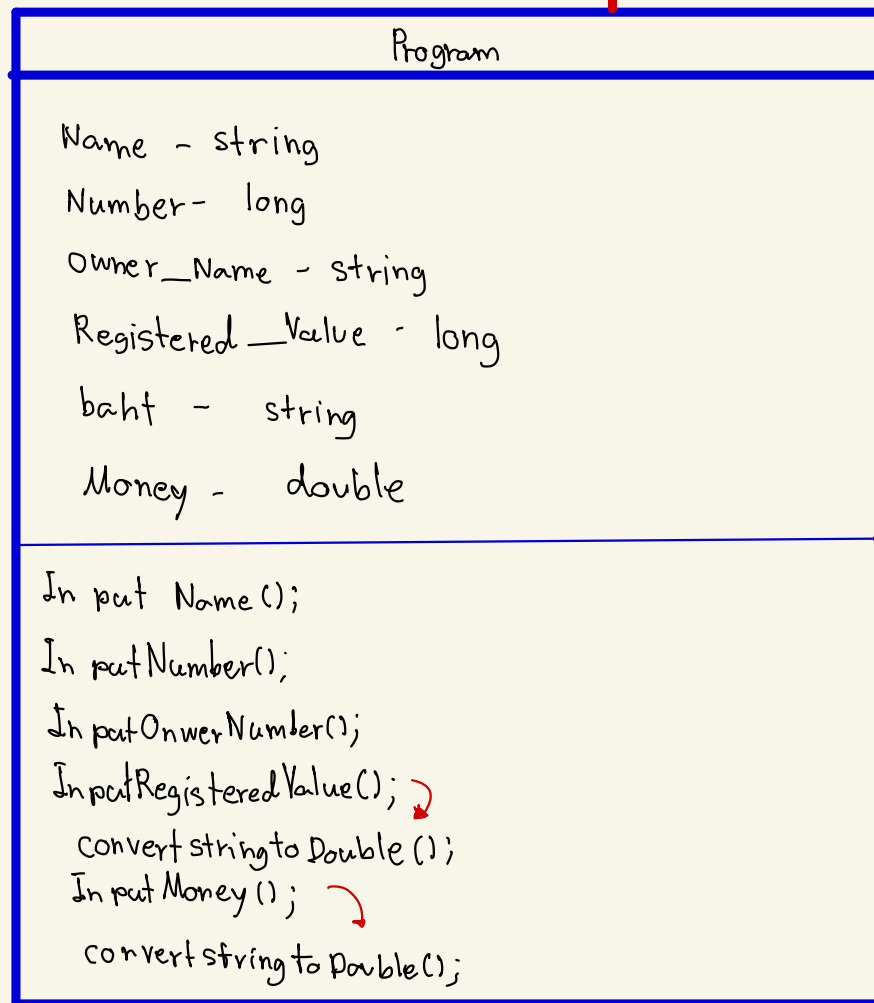 Program
Name - string
Number - long
Owner_Name - string
Registered_Value - long
baht - string
Money - double
Input Name();
InputNumber();
InputOnwerNumber();
InputRegisteredValue();
convertstringtoDouble();
InputMoney();
convertstringtoDouble();